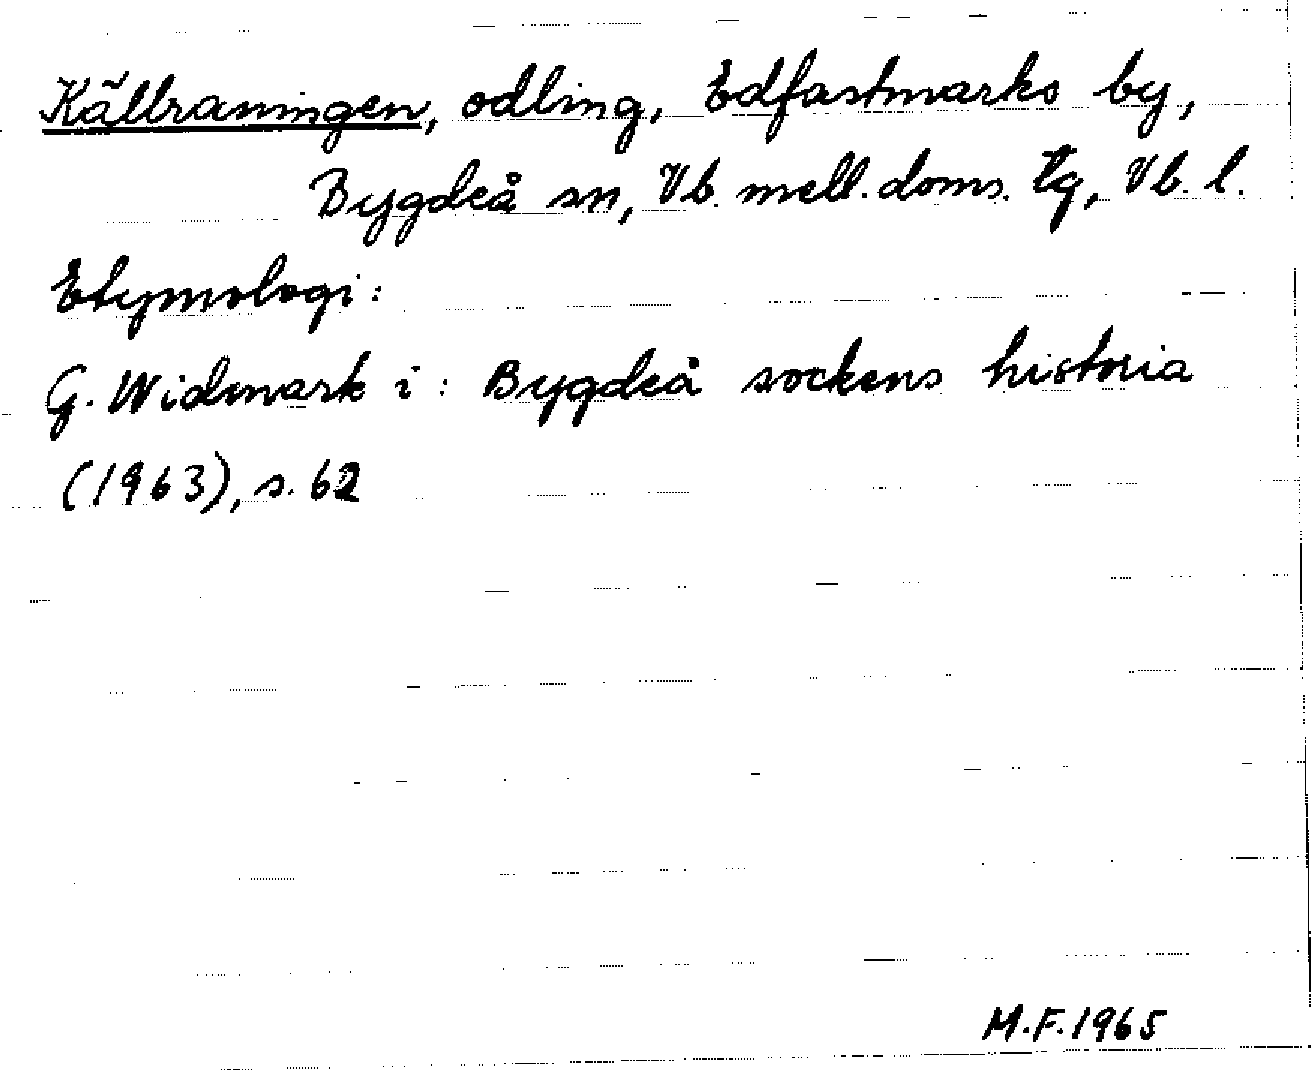 Källraningen, odling, Edfastmarks by,
Bygdeå sn, Vb. mell. doms. tg, Vb. l.
Etymologi:
G. Widmark i: Bygdeå sockens historia
(1963), s. 62
M.F. 1965